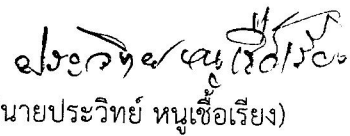 ประวิทย์ หนูเชื้อเรียง
(นายประวิทย์ หนูเชื้อเรียง)